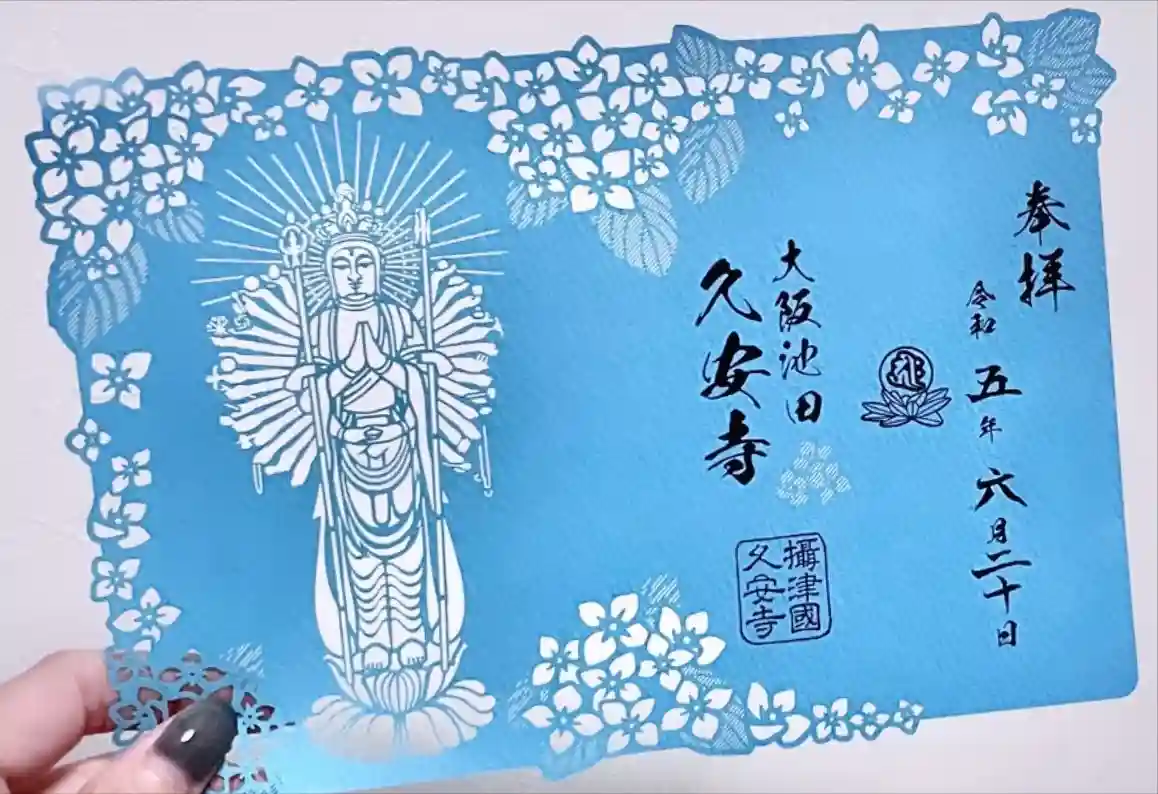 奉拝
令和五年六月二十日
大阪池田
久安寺
攝津國
久安寺